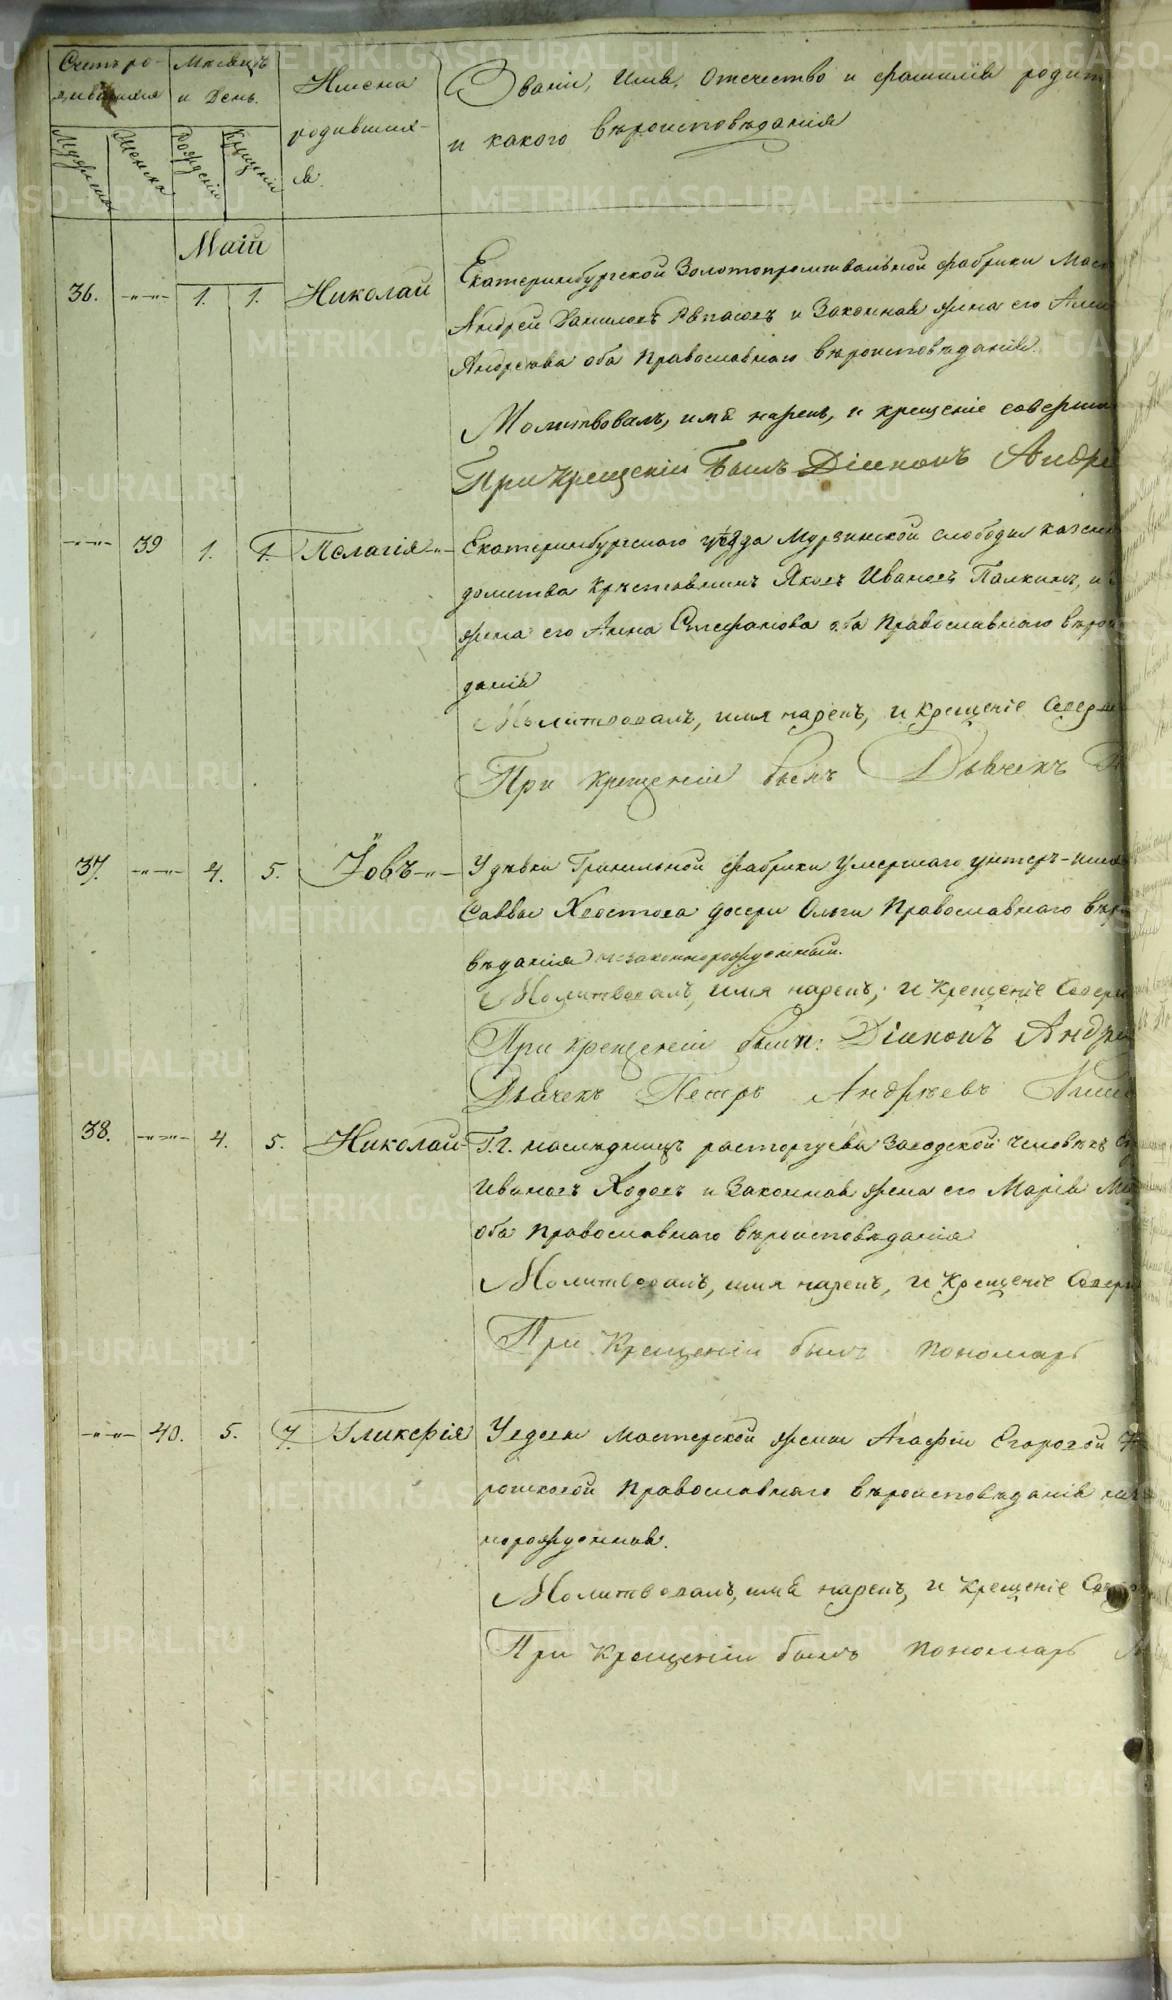 Счетъ ро-
дившихся
Мѣсяцъ
и день.
Имена
родивших-
ся.
Званіе, Имя, Отечество и фамилія родит
и какого вѣроисповѣданія
Мужеска
Женска
Рожденія
Крещенія
Маій
36. 1. 1. Николай Екатеринбургской Золотопромывальной фабрики Маст
Андрей Даниловъ и Законная жена его
Андреева оба Православнаго вѣроисповѣданія.
Молитвовалъ, имя нарекъ, и крещеніе соверши
При крещеніи былъ Діаконъ Андре
39 1. 1. Пелагія Екатеринбургскаго уѣзда Мурзинской слободы казен
домства Яковъ Ивановъ Палкинъ, и
жена его Анна Стефанова оба Православнаго вѣрои
данія
Молитвовалъ, имя нарекъ, и крещеніе Совер
При крещеніи былъ Дьячекъ
37. 4. 5. Іовъ У дѣвки Гранильной фабрики умершаго унтеръ-
Саввы Хвостова дочери Ольги Православнаго вѣр
вѣданія незаконнорожденный.
Молитвовалъ, имя нарекъ, и крещеніе Совер
При крещеніи были: Діаконъ Андре
Дьячекъ Петръ Андреевъ
38. 4. 5. Николай Г.г. наслѣдницъ расторгуева Заводской человѣкъ
Ивановъ Ходовъ и Законная жена его Марія
оба Православнаго вѣроисповѣданія
Молитвовалъ, имя нарекъ, и Крещеніе Совер
При Крещеніи былъ пономарь
40. 5. 7. Гликерія У вдовы мастерской жены Агафіи Егоровой
рошковой Православнаго вѣроисповѣданія
норожденная.
Молитвовалъ, имя нарекъ, и крещеніе Сов
При Крещеніи былъ пономарь
METRIKI.GASO-URAL.RU